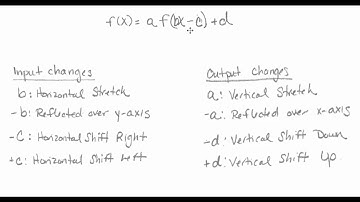 f(x) = a f(bx - c) + d
Input changes
b: Horizontal Stretch
-b: Reflected over y-axis
-C: Horizontal Shift Right
+c: Horizontal Shift Left
Output Changes
a: Vertical Stretch
-a: Reflected over x-axis
-d: Vertical Shift Down
+d: Vertical Shift Up